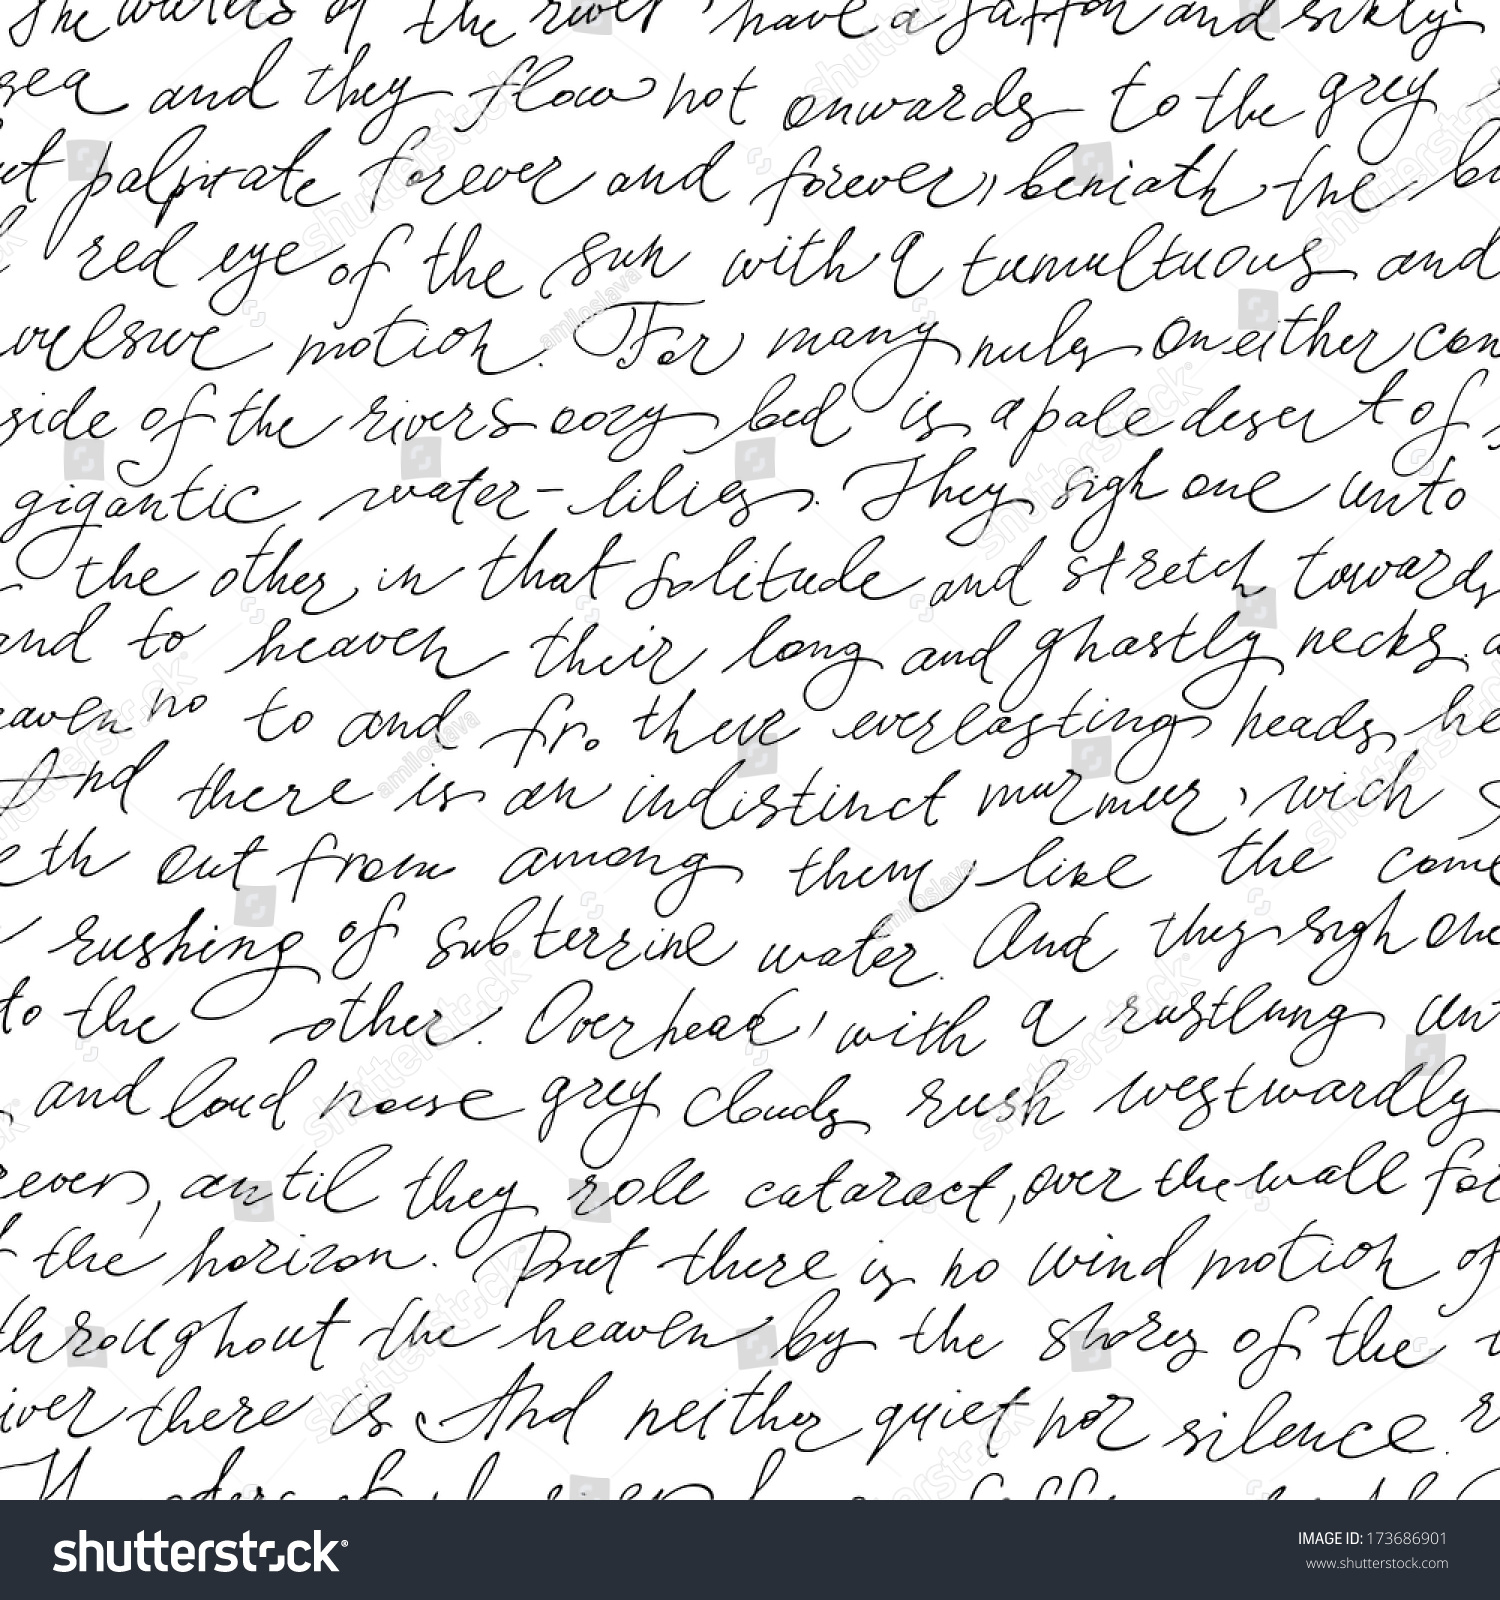 The waters of the river have a saffron and sikly
sea and they flow not onwards to the grey
ut palpitate forever and forever, beniath the bu
red eye of the sun with a tumultuous and
vulsive motion. For many miles on either con
side of the rivers oozy bed is a pale desert of
gigantic water-lilies. They sigh one unto
the other in that solitude and stretch towards
and to heaven their long and ghastly necks. a
eaven no to and fro their everlasting heads he
And there is an indistinct murmur, wich
eth out from among them like the come
rushing of subterrine water. And they sigh one
to the other. Overhead, with a rustlung un
and loud noise grey clouds rush westwardly
rever, until they role cataract, over the wall fo
f the horizon. But there is no wind motion of
throughout the heaven by the shores of the
iver there is And neither quiet nor silence.
shutterstock
IMAGE ID: 173686901
www.shutterstock.com
amiloslava